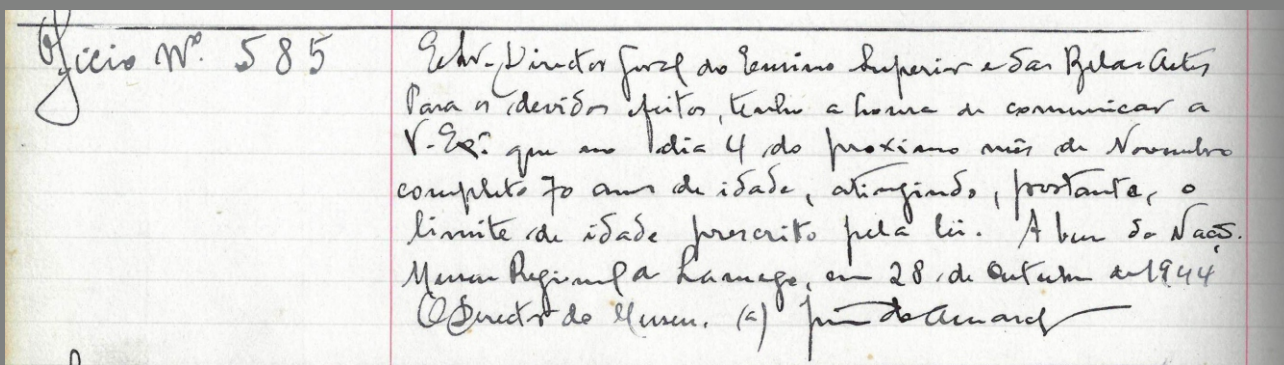 Oficio Nº. 585
Exmº. Director Geral do Ensino Superior e das Belas Artes
Para os devidos efeitos, tenho a honra de comunicar a
V. Exª. que no dia 4 do proximo mês de Novembro
completo 70 anos de idade, atingindo, portanto, o
limite de idade prescrito pela lei. A bem da Nação.
Museu Regional de Lamego, em 28 de Outubro de 1944
O Director do Museu. (a) João do Amaral